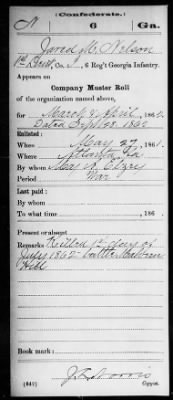 (Confederate.)
N 6 Ga.
Jared M. Nelson
Co. I, 6 Reg't Georgia Infantry.
Appears on
Company Muster Roll
of the organization named above,
for March & April, 1862.
Dated Sept 28. 1862
Enlisted:
When May 27, 1861.
Where Atlanta Ga
By whom Maj
Period War
Last paid:
By whom
To what time , 186 .
Present or absent
Remarks: Killed 1st day of
July 1862 battle Malvern
Hill
Book mark:
(642) Copyist.